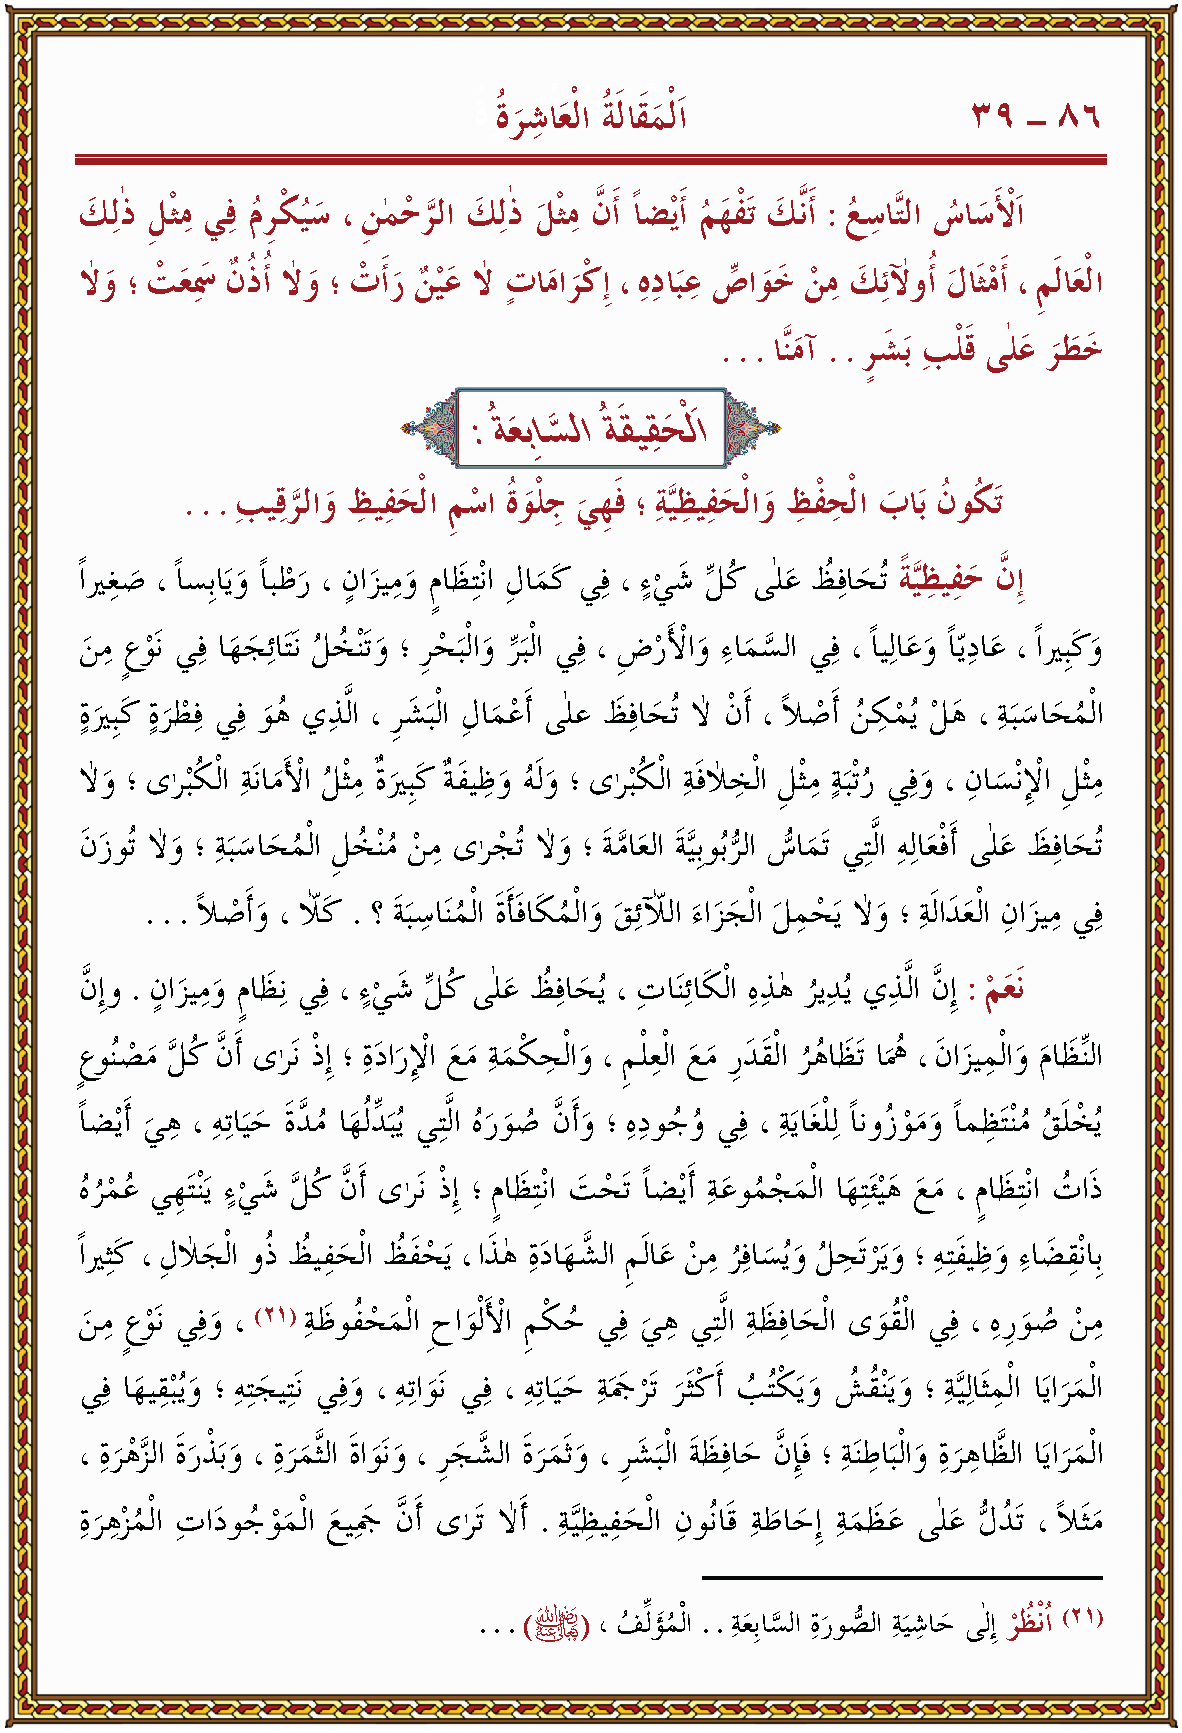 ٨٦ – ٣٩ اَلْمَقَالَةُ الْعَاشِرَةُ
اَلْأَسَاسُ التَّاسِعُ : أَنَّكَ تَفْهَمُ أَيْضاً أَنَّ مِثْلَ ذٰلِكَ الرَّحْمٰنِ ، سَيُكْرِمُ فِي مِثْلِ ذٰلِكَ
الْعَالَمِ ، أَمْثَالَ أُولٰٓئِكَ مِنْ خَوَاصِّ عِبَادِهِ ، إِكْرَامَاتٍ لَا عَيْنٌ رَأَتْ ؛ وَلَا أُذُنٌ سَمِعَتْ ؛ وَلَا
خَطَرَ عَلٰى قَلْبِ بَشَرٍ . . آمَنَّا . . .
اَلْحَقِيقَةُ السَّابِعَةُ :
تَكُونُ بَابَ الْحِفْظِ وَالْحَفِيظِيَّةِ ؛ فَهِيَ جِلْوَةُ اسْمِ الْحَفِيظِ وَالرَّقِيبِ . . .
إِنَّ حَفِيظِيَّةً تُحَافِظُ عَلٰى كُلِّ شَيْءٍ ، فِي كَمَالِ انْتِظَامٍ وَمِيزَانٍ ، رَطْباً وَيَابِساً ، صَغِيراً
وَكَبِيراً ، عَادِيّاً وَعَالِياً ، فِي السَّمَاءِ وَالْأَرْضِ ، فِي الْبَرِّ وَالْبَحْرِ ؛ وَتَنْخُلُ نَتَائِجَهَا فِي نَوْعٍ مِنَ
الْمُحَاسَبَةِ ، هَلْ يُمْكِنُ أَصْلاً ، أَنْ لَا تُحَافِظَ عَلٰى أَعْمَالِ الْبَشَرِ ، الَّذِي هُوَ فِي فِطْرَةٍ كَبِيرَةٍ
مِثْلِ الْإِنْسَانِ ، وَفِي رُتْبَةٍ مِثْلِ الْخِلَافَةِ الْكُبْرٰى ؛ وَلَهُ وَظِيفَةٌ كَبِيرَةٌ مِثْلُ الْأَمَانَةِ الْكُبْرٰى ؛ وَلَا
تُحَافِظَ عَلٰى أَفْعَالِهِ الَّتِي تَمَاسُّ الرُّبُوبِيَّةَ الْعَامَّةَ ؛ وَلَا تُجْرٰى مِنْ مُنْخُلِ الْمُحَاسَبَةِ ؛ وَلَا تُوزَنَ
فِي مِيزَانِ الْعَدَالَةِ ؛ وَلَا يَحْمِلَ الْجَزَاءَ اللَّآئِقَ وَالْمُكَافَأَةَ الْمُنَاسِبَةَ ؟ . كَلَّا ، وَأَصْلاً . . .
نَعَمْ : إِنَّ الَّذِي يُدِيرُ هٰذِهِ الْكَائِنَاتِ ، يُحَافِظُ عَلٰى كُلِّ شَيْءٍ ، فِي نِظَامٍ وَمِيزَانٍ . وإِنَّ
النِّظَامَ وَالْمِيزَانَ ، هُمَا تَظَاهُرُ الْقَدَرِ مَعَ الْعِلْمِ ، وَالْحِكْمَةِ مَعَ الْإِرَادَةِ ؛ إِذْ نَرٰى أَنَّ كُلَّ مَصْنُوعٍ
يُخْلَقُ مُنْتَظِماً وَمَوْزُوناً لِلْغَايَةِ ، فِي وُجُودِهِ ؛ وَأَنَّ صُوَرَهُ الَّتِي يُبَدِّلُهَا مُدَّةَ حَيَاتِهِ ، هِيَ أَيْضاً
ذَاتُ انْتِظَامٍ ، مَعَ هَيْئَتِهَا الْمَجْمُوعَةِ أَيْضاً تَحْتَ انْتِظَامٍ ؛ إِذْ نَرٰى أَنَّ كُلَّ شَيْءٍ يَنْتَهِي عُمْرُهُ
بِانْقِضَاءِ وَظِيفَتِهِ ؛ وَيَرْتَحِلُ وَيُسَافِرُ مِنْ عَالَمِ الشَّهَادَةِ هٰذَا ، يَحْفَظُ الْحَفِيظُ ذُو الْجَلَالِ ، كَثِيراً
مِنْ صُوَرِهِ ، فِي الْقُوَى الْحَافِظَةِ الَّتِي هِيَ فِي حُكْمِ الْأَلْوَاحِ الْمَحْفُوظَةِ (٢١) ، وَفِي نَوْعٍ مِنَ
الْمَرَايَا الْمِثَالِيَّةِ ؛ وَيَنْقُشُ وَيَكْتُبُ أَكْثَرَ تَرْجَمَةِ حَيَاتِهِ ، فِي نَوَاتِهِ ، وَفِي نَتِيجَتِهِ ؛ وَيُبْقِيهَا فِي
الْمَرَايَا الظَّاهِرَةِ وَالْبَاطِنَةِ ؛ فَإِنَّ حَافِظَةَ الْبَشَرِ ، وَثَمَرَةَ الشَّجَرِ ، وَنَوَاةَ الثَّمَرَةِ ، وَبَذْرَةَ الزَّهْرَةِ ،
مَثَلاً ، تَدُلُّ عَلٰى عَظَمَةِ إِحَاطَةِ قَانُونِ الْحَفِيظِيَّةِ . أَلَا تَرٰى أَنَّ جَمِيعَ الْمَوْجُودَاتِ الْمُزْهِرَةِ
(٢١) اُنْظُرْ إِلٰى حَاشِيَةِ الصُّورَةِ السَّابِعَةِ . . الْمُؤَلِّفُ ، (رضي الله تعالى عنه) . . .